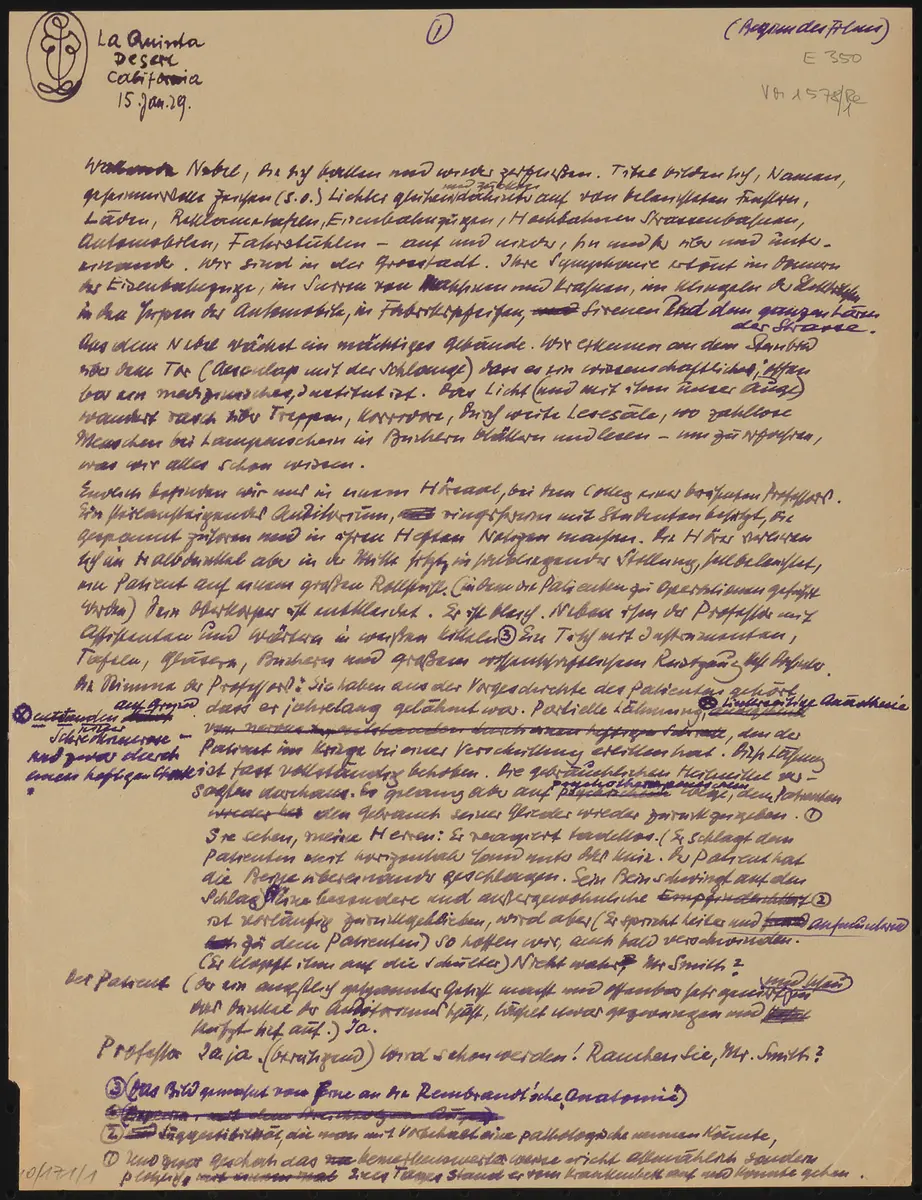 ①
(Beginn des Films)
La Quinta
Desert
California
15. Jan. 29.
E 350
Nebel, die sich ballen und wieder zerfließen. Titel bilden sich, Namen,
geheimnisvolle Zeichen (s.o.) Lichter glühen und zucken dahinter auf von beleuchteten Fenstern,
Läden, Reklametafeln, Eisenbahnzügen, Hochbahnen Strassenbahnen,
Automobilen, Fahrstühlen – auf und nieder, hin und her über und unter-
einander. Wir sind in der Grosstadt. Ihre Symphonie ertönt im Donnern
der Eisenbahnzüge, im Surren von Maschinen und Krahnen, im Klingeln der
in den Hupen der Automobile, in Fabrikspfeifen, Sirenen und dem ganzen Lärm
der Strasse.
Aus dem Nebel wächst ein mächtiges Gebäude. Wir erkennen an dem Steinbild
über dem Tor (Aesculap mit der Schlange) dass es ein wissenschaftliches, offen
bar ein medizinisches Institut ist. Das Licht (und mit ihm unser Auge)
wandert rasch über Treppen, Korridore, durch weite Lesesäle, wo zahllose
Menschen bei Lampenschein in Büchern blättern und lesen – um zu erfahren,
was wir alles schon wissen.
Endlich befinden wir uns in einem Hörsaal, bei dem Colleg eines berühmten Professors.
Ein steilansteigendes Auditorium, ringsherum mit Studenten besetzt, die
gespannt zuhören und in ihren Heften Notizen machen. Die Hörer verlieren
sich im Halbdunkel aber in der Mitte sitzt, in halbliegender Stellung, hellbeleuchtet,
ein Patient auf einem großen Rollstuhl. (in dem die Patienten zu Operationen geführt
werden) Sein Oberkörper ist entkleidet. Er ist bleich. Neben ihm der Professor mit
Assistenten und Wärtern in weißen Kitteln ③ Ein Tisch mit Instrumenten,
Tafeln, Gläsern, Büchern und großem wissenschaftlichem Rüstzeug
Die Stimme des Professors: Sie haben aus der Vorgeschichte des Patienten gehört
dass er jahrelang gelähmt war. Partielle Lähmung, ⊗ linksseitige Anästhesie
⊗ entstanden auf Grund
einer
Schreckneurose –
und zwar durch
einen heftigen Chok
den der
Patient im Kriege bei einer Verschüttung erlitten hat. Diese Lähmung
ist fast vollständig behoben. Die gebräuchlichen Heilmittel ver-
sagten durchaus. Es gelang aber auf psychotherapeutischem Wege, dem Patienten
den Gebrauch seiner Glieder wieder zurückzugeben. ①
Sie sehen, meine Herren: Er reagiert tadellos. (Er schlägt dem
Patienten mit horizontaler Hand unter das Knie. Der Patient hat
die Beine übereinander geschlagen. Sein Bein schwingt auf den
Schlag) Eine besondere und außergewöhnliche ②
ist vorläufig zurückgeblieben, wird aber (Er spricht heiter und aufmunternd
zu dem Patienten) so hoffen wir, auch bald verschwinden.
(Er klopft ihm auf die Schulter) Nicht wahr, Mr. Smith?
Der Patient (der ein ängstlich gespanntes Gesicht macht und offenbar sehr geniert und scheu in
das Dunkel des Auditoriums schaut, lächelt etwas gezwungen und
seufzt tief auf.) Ja.
Professor Ja ja, (beruhigend) wird schon werden! Rauchen Sie, Mr. Smith?
③ (Das Bild gemahnt von Ferne an die Rembrandt'sche "Anatomie")
② Suggestibilität, die man mit Vorbehalt eine pathologische nennen könnte,
① Und zwar geschah das bemerkenswerter weise nicht allmählich sondern
plötzlich, Eines Tages stand er vom Krankenbett auf und konnte gehen.